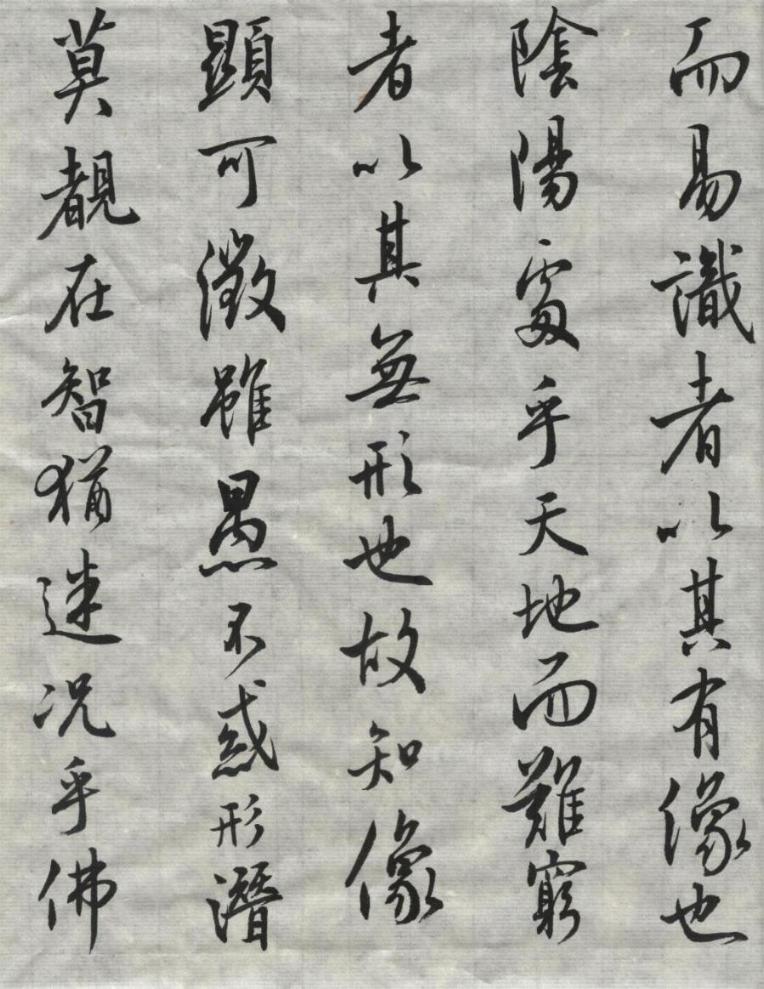 而易識者以其有像也
陰陽處乎天地而難窮
者以其無形也故知像
顯可徵雖愚不惑形潛
莫覩在智猶迷况乎佛